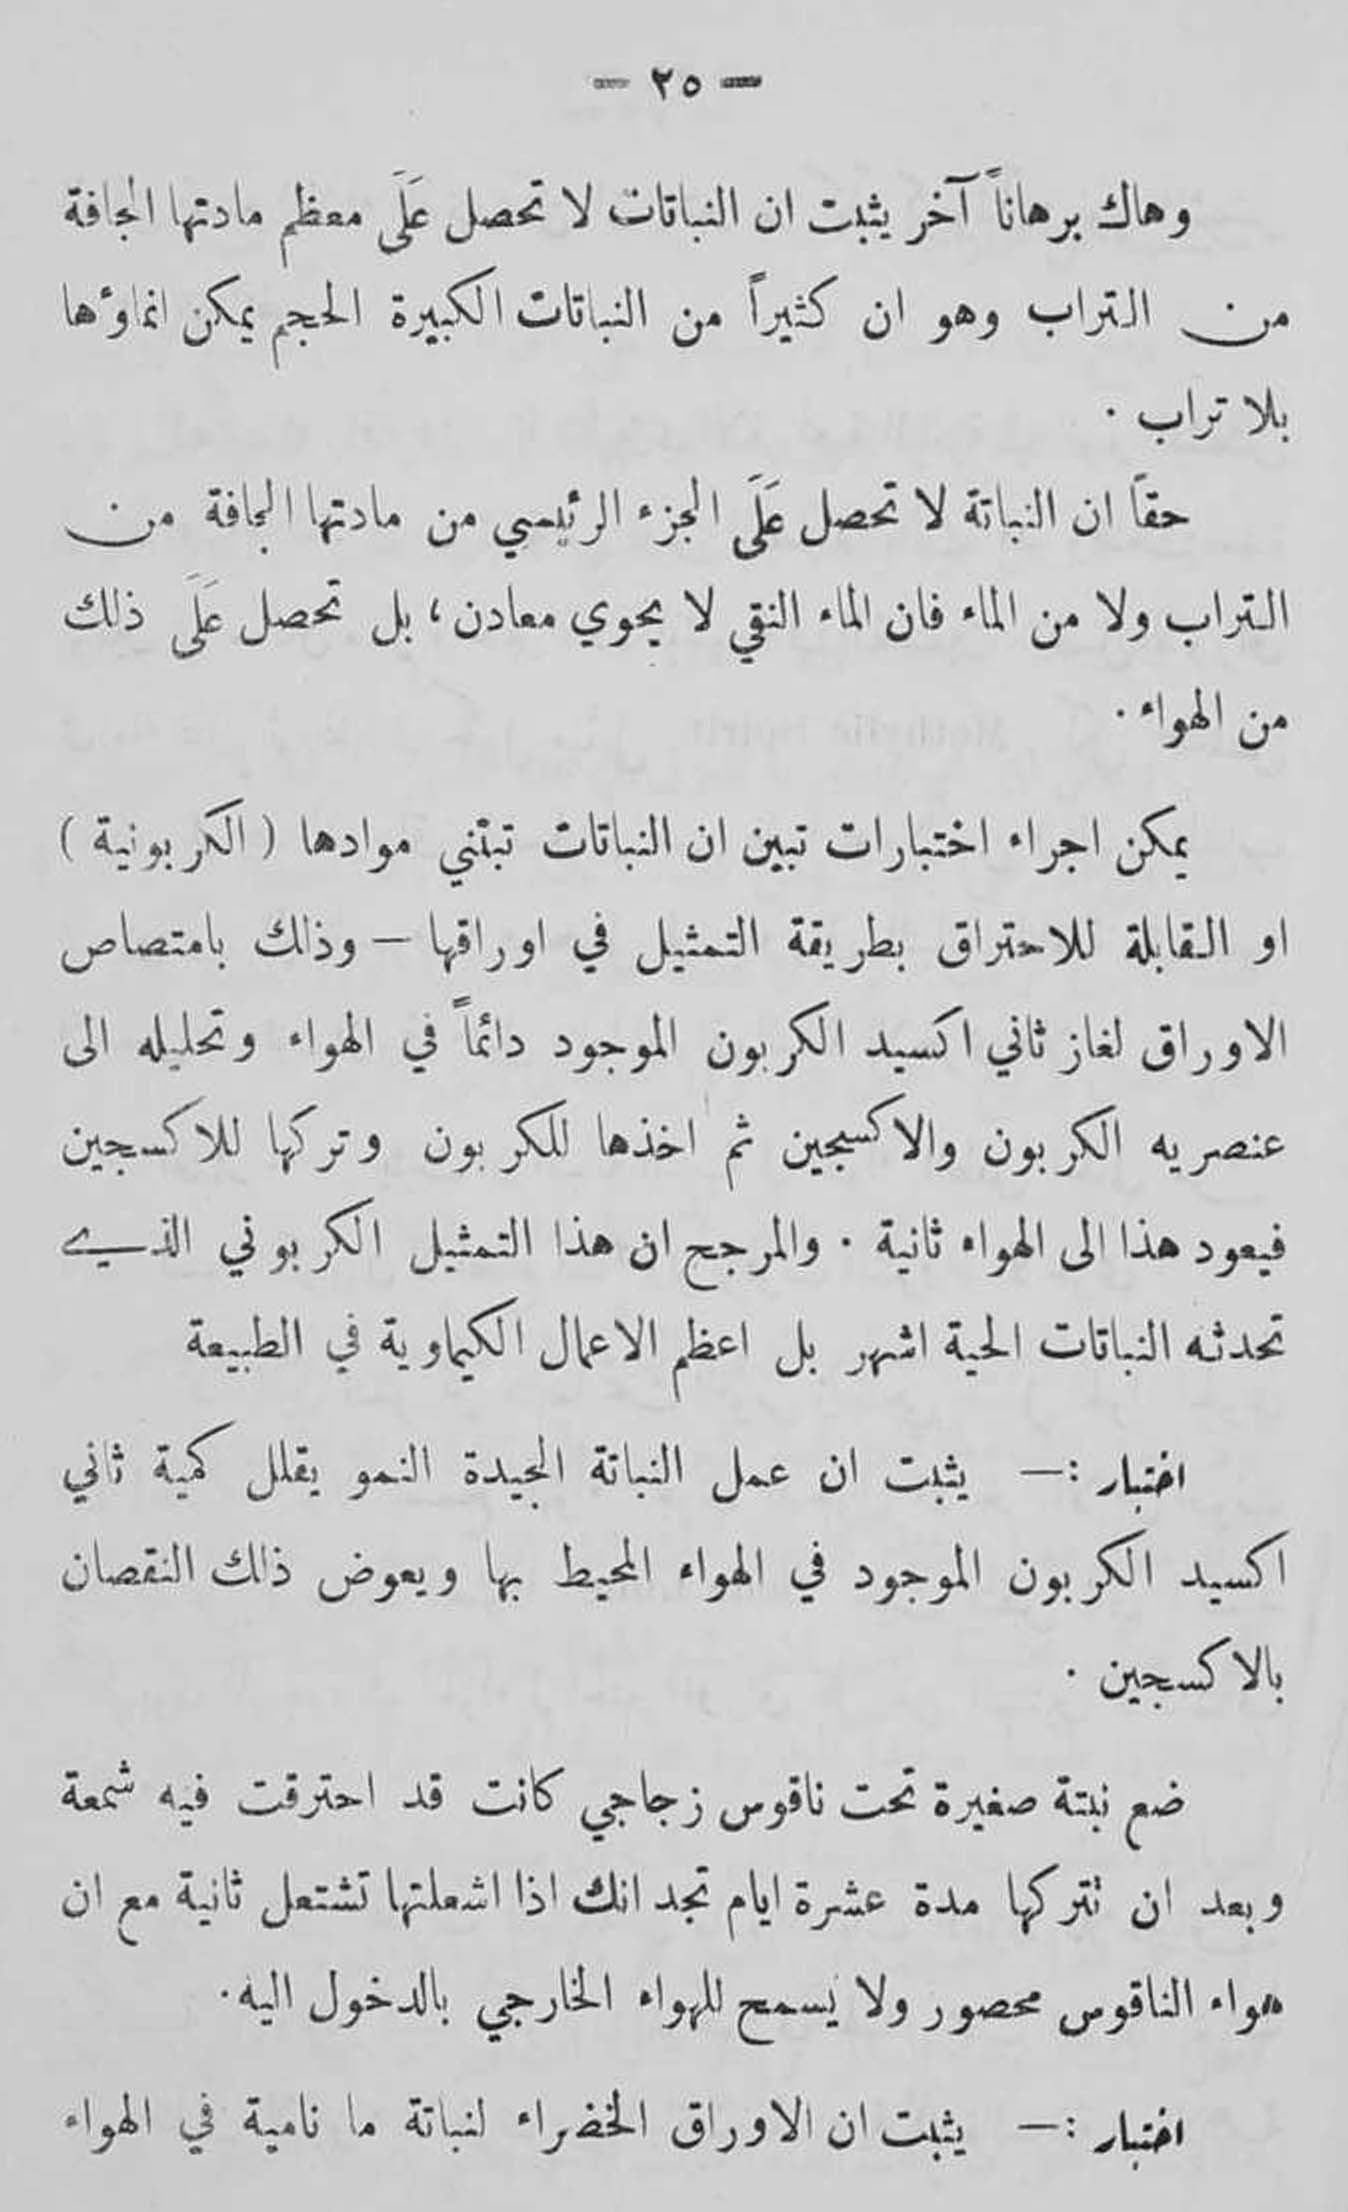 — ٢٥ —
وهاك برهاناً آخر يثبت ان النباتات لا تحصل عَلَى معظم مادتها الجافة
من التراب وهو ان كثيراً من النباتات الكبيرة الحجم يمكن انماؤها
بلا تراب ٠
حقاً ان النباتة لا تحصل عَلَى الجزء الرئيسي من مادتها الجافة من
التراب ولا من الماء فان الماء النقي لا يحوي معادن ، بل تحصل عَلَى ذلك
من الهواء ٠
يمكن اجراء اختبارات تبين ان النباتات تبتني موادها ( الكربونية )
او القابلة للاحتراق بطريقة التمثيل في اوراقها — وذلك بامتصاص
الاوراق لغاز ثاني اكسيد الكربون الموجود دائماً في الهواء وتحليله الى
عنصريه الكربون والاكسجين ثم اخذها للكربون وتركها للاكسجين
فيعود هذا الى الهواء ثانية ٠ والمرجح ان هذا التمثيل الكربوني الذي
تحدثه النباتات الحية اشهر بل اعظم الاعمال الكيماوية في الطبيعة
اختبار :— يثبت ان عمل النباتة الجيدة النمو يقلل كمية ثاني
اكسيد الكربون الموجود في الهواء المحيط بها ويعوض ذلك النقصان
بالاكسجين ٠
ضع نبتة صغيرة تحت ناقوس زجاجي كانت قد احترقت فيه شمعة
وبعد ان تتركها مدة عشرة ايام تجد انك اذا اشعلتها تشتعل ثانية مع ان
هواء الناقوس محصور ولا يسمح للهواء الخارجي بالدخول اليه ٠
اختبار :— يثبت ان الاوراق الخضراء لنباتة ما نامية في الهواء